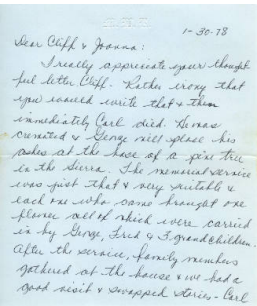 1-30-78
Dear Cliff & Joanna:
I really appreciate your thought
ful letter Cliff. Rather irony that
you would write that & then
immediately Carl died. He was
cremated & George will place his
ashes at the base of a pine tree
in the Sierra. The memorial service
was just that & very suitable &
each one who came brought one
flower all of which were carried
in by George, Fred & 3 grandchildren.
After the service, family members
gathered at the house & we had a
good visit & swapped stories - Carl